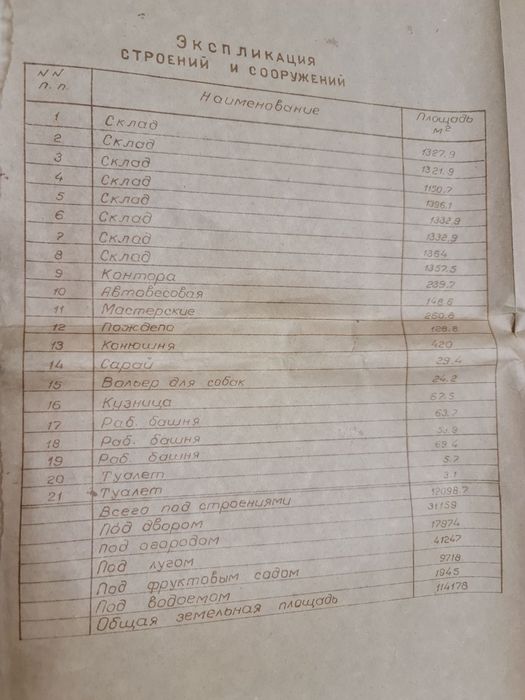 Экспликация
строений и сооружений
NN п.п. Наименование Площадь м²
1 Склад 1327.9
2 Склад 1321.9
3 Склад 1150.7
4 Склад 1396.1
5 Склад 1332.9
6 Склад 1332.9
7 Склад 1364
8 Склад 1357.5
9 Контора 239.7
10 Автовесовая 148.6
11 Мастерские 260.6
12 Пождепо 128.8
13 Конюшня 420
14 Сарай 29.4
15 Вольер для собак 24.2
16 Кузница 67.5
17 Раб. башня 63.7
18 Раб. башня 53.9
19 Раб. башня 69.4
20 Туалет 5.7
21 Туалет 3.1
Всего под строениями 12098.7
Под двором 31159
под огородом 17974
Под лугом 41247
Под фруктовым садом 9718
Под водоемом 1945
Общая земельная площадь 114178